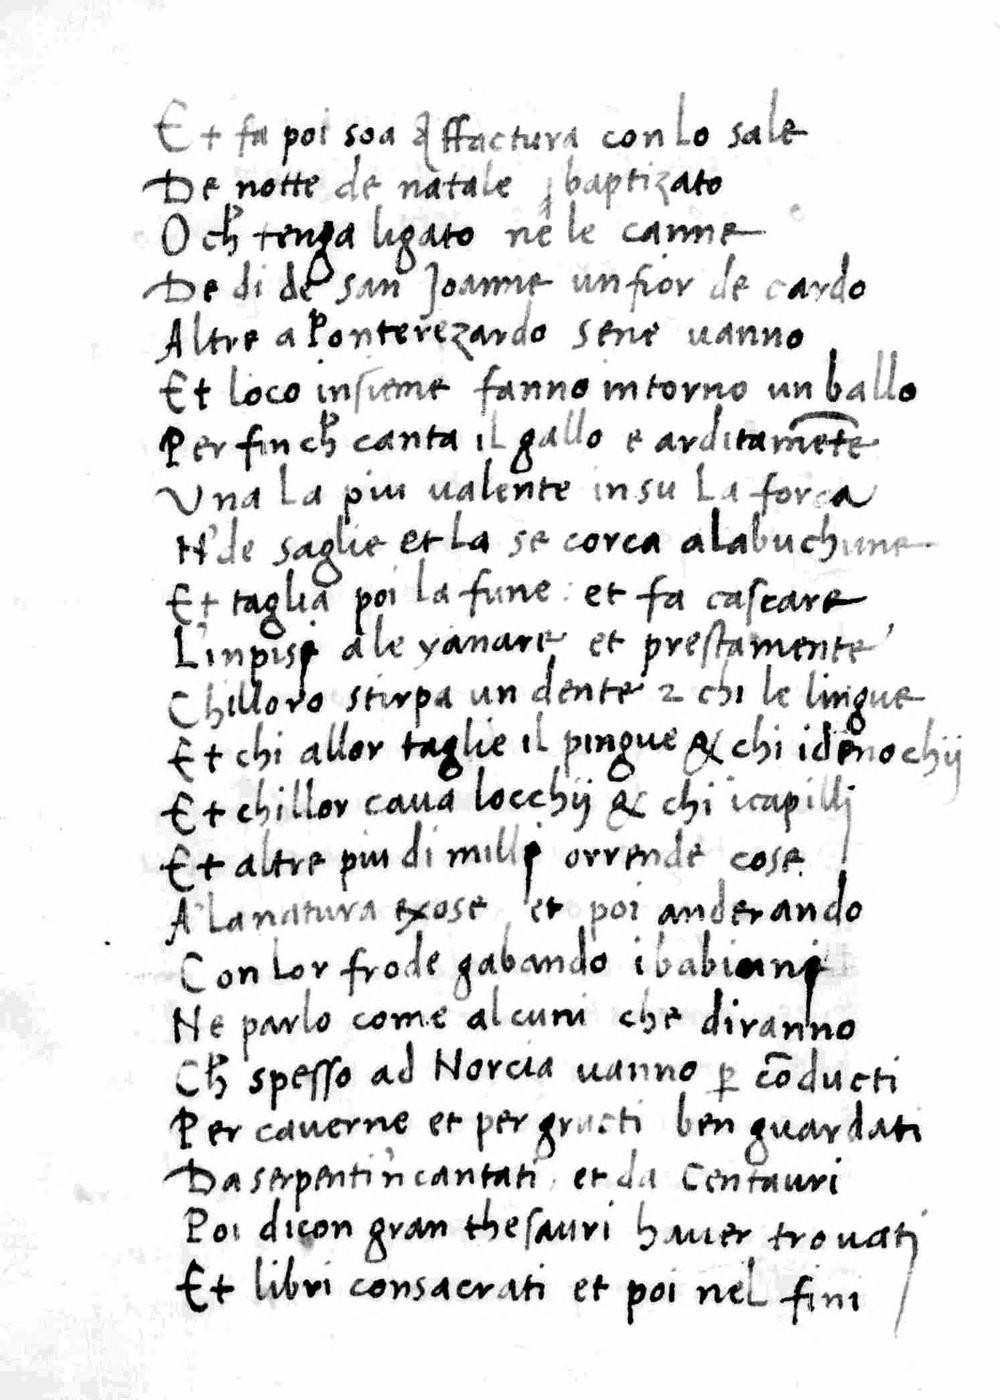 Et fa poi soa affactura con lo sale
De notte de natale j baptizato
O ch̃ tenga ligato ne le canne
De di de san Joanne un fior de cardo
Altre a Ponterezardo sene uanno
Et loco insieme fanno intorno un ballo
Per fin ch̃ canta il gallo e arditamẽte
Una la piu ualente in su la forca
N'de saglie et la se corca alabuchune
Et taglia poi la fune : et fa cascare
L'inpisj a le yanare et prestamente
Chilloro stirpa un dente 2 chi le lingue
Et chi allor taglie il pingue & chi idenochij
Et chillor caua locchij & chi icapillj
Et altre piu di millj orrende cose
A' la natura exose et poi anderando
Con lor frode gabando i babianj
Ne parlo come alcuni che diranno
Ch̃ spesso ad Norcia uanno ꝑ cõducti
Per cauerne et per gructi ben guardati
Da serpenti 'ncantati, et da Centauri
Poi dicon gran thesauri hauer trouatj
Et libri consacrati et poi nel fini